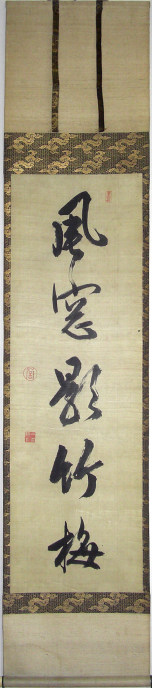 風窓影竹梅